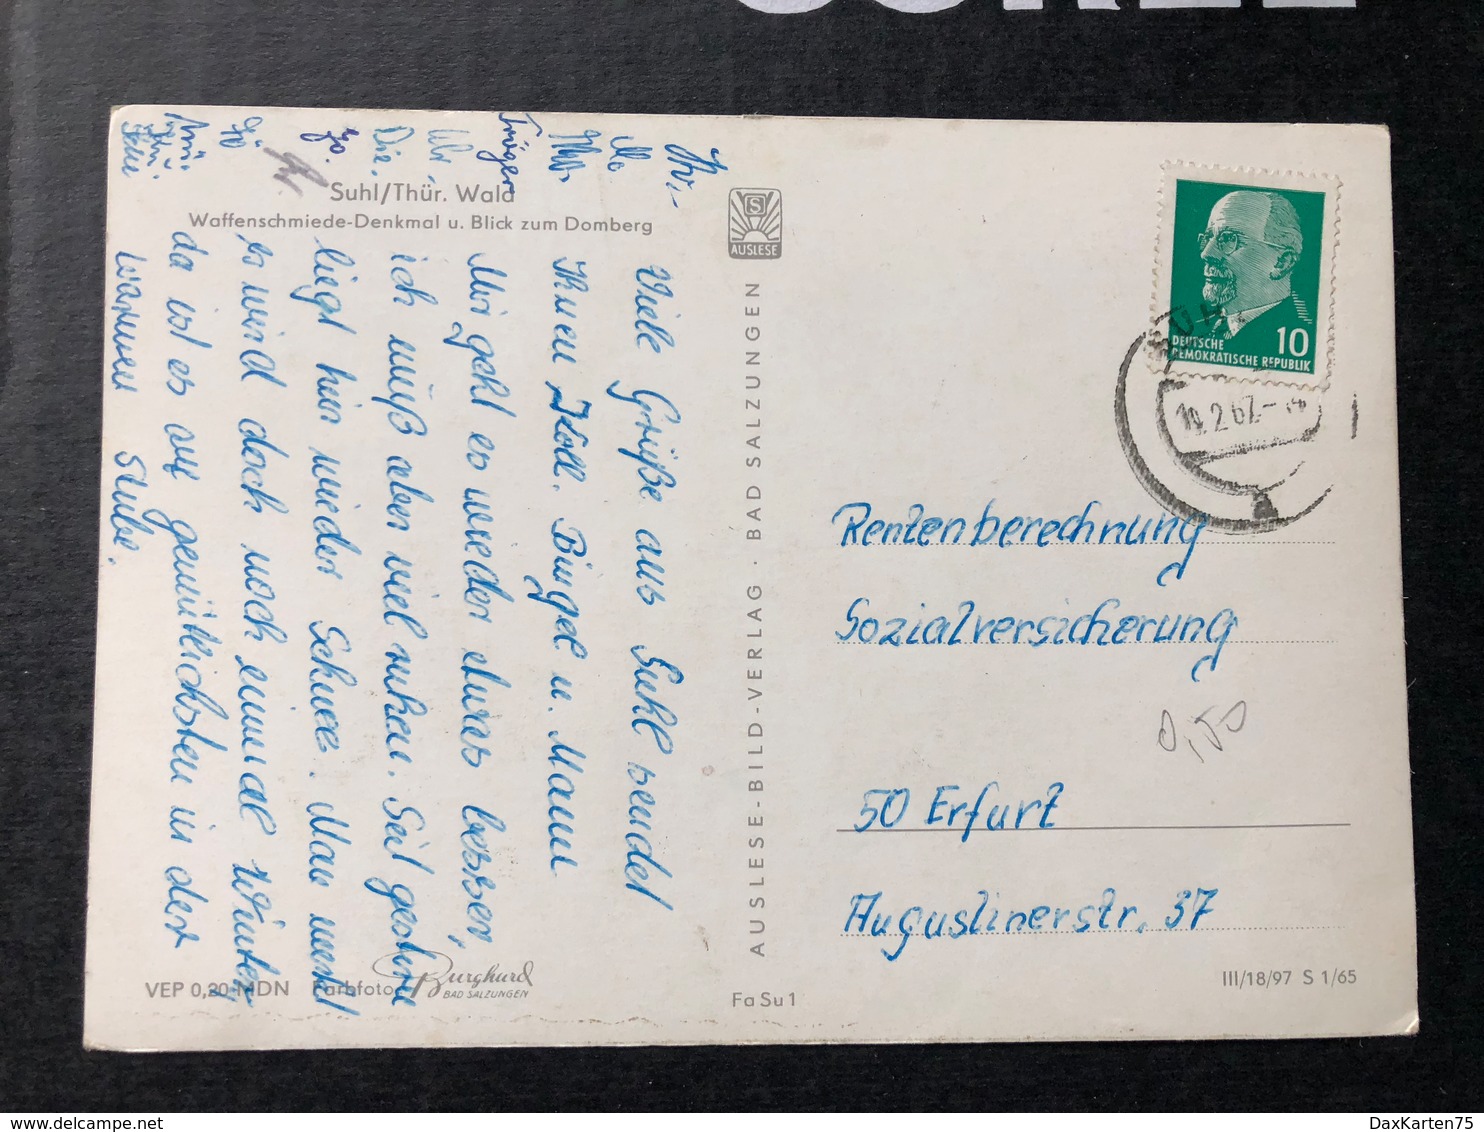 Suhl/Thür. Wald
Waffenschmiede-Denkmal u. Blick zum Domberg
Viele Grüße aus Suhl sendet
Ihnen Koll. Bingel u. Mann
Mir geht es wieder etwas besser,
ich muß aber viel ruhen. Seit gestern
liegt hier wieder Schnee. Man merkt
es wird doch noch einmal Winter,
da ist es am gemütlichsten in der
warmen Stube.
Träger
Die.
AUSLESE
AUSLESE-BILD-VERLAG · BAD SALZUNGEN
DEUTSCHE
DEMOKRATISCHE REPUBLIK
10
SUHL
.2.67.-
Rentenberechnung
Sozialversicherung
0,50
50 Erfurt
Augustinerstr. 37
VEP 0,20 MDN Farbfoto: Burghard
BAD SALZUNGEN
Fa Su 1
III/18/97 S 1/65
DaxKarten75